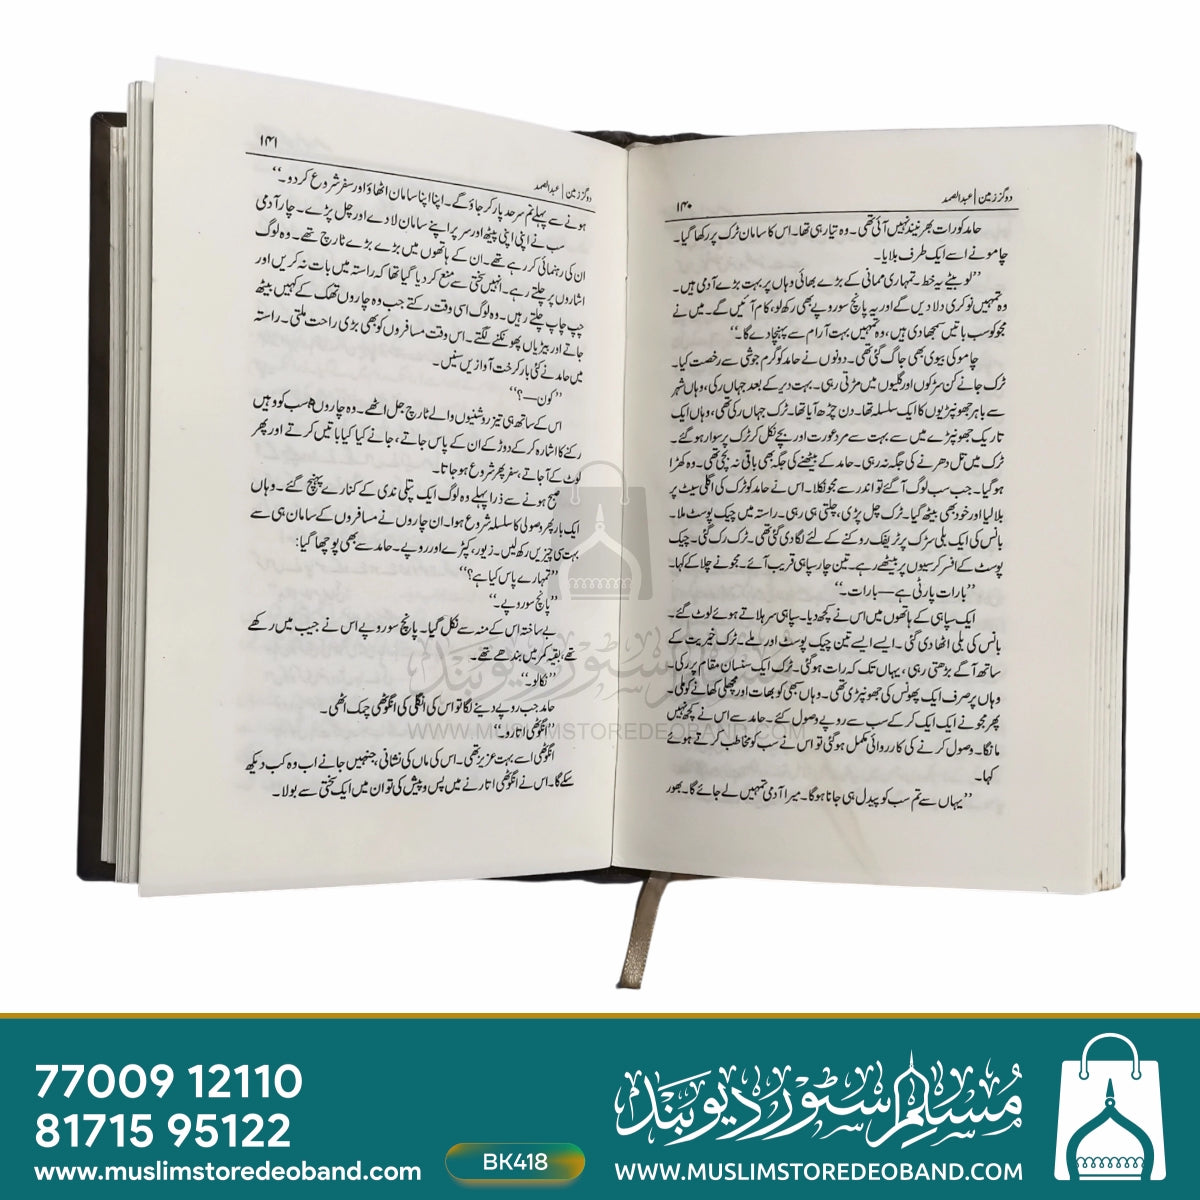 دو گز زمین | عبدالصمد
۱۴۰
حامد کو رات بھر نیند نہیں آئی تھی۔ وہ تیار ہی تھا۔ اس کا سامان ٹرک پر رکھا گیا۔
چامو نے اسے ایک طرف بلایا۔
’’لو بیٹے یہ خط۔ تمہاری ممانی کے بڑے بھائی وہاں پر بہت بڑے آدمی ہیں۔
وہ تمہیں نوکری دلا دیں گے اور یہ پانچ سو روپے بھی رکھ لو، کام آئیں گے۔ میں نے
مجو کو سب باتیں سمجھا دی ہیں، وہ تمہیں بہت آرام سے پہنچا دے گا۔‘‘
چامو کی بیوی بھی جاگ گئی تھی۔ دونوں نے حامد کو گرم جوشی سے رخصت کیا۔
ٹرک جانے کن سڑکوں اور گلیوں میں مڑتی رہی۔ بہت دیر کے بعد جہاں رکی، وہاں شہر
سے باہر جھونپڑیوں کا ایک سلسلہ تھا۔ دن چڑھ آیا تھا۔ ٹرک جہاں رکی تھی، وہاں ایک
تاریک جھونپڑے میں سے بہت سے مرد عورت اور بچے نکل کر ٹرک پر سوار ہو گئے۔
ٹرک میں تل دھرنے کی جگہ نہ رہی۔ حامد کے بیٹھنے کی جگہ بھی باقی نہ بچی تھی۔ وہ کھڑا
ہو گیا۔ جب سب لوگ آ گئے تو اندر سے مجو نکلا۔ اس نے حامد کو ٹرک کی اگلی سیٹ پر
بلا لیا اور خود بھی بیٹھ گیا۔ ٹرک چل پڑی، چلتی ہی رہی۔ راستہ میں چیک پوسٹ ملا۔
بانس کی ایک بلی سڑک پر ٹریفک روکنے کے لئے لگا دی گئی تھی۔ ٹرک رک گئی۔ چیک
پوسٹ کے افسر کرسیوں پر بیٹھے رہے۔ تین چار سپاہی قریب آئے۔ مجو نے چلا کے کہا۔
’’بارات پارٹی ہے — بارات۔‘‘
ایک سپاہی کے ہاتھوں میں اس نے کچھ دیا۔ سپاہی سر ہلاتے ہوئے لوٹ گئے۔
بانس کی بلی اٹھا دی گئی۔ ایسے ایسے تین چیک پوسٹ اور ملے۔ ٹرک خیریت کے
ساتھ آگے بڑھتی رہی، یہاں تک کہ رات ہو گئی۔ ٹرک ایک سنسان مقام پر رکی۔
وہاں پر صرف ایک پھونس کی جھونپڑی تھی۔ وہاں سبھی کو بھات اور مچھلی کھانے کو ملی۔
پھر مجو نے ایک ایک کر کے سب سے روپے وصول کئے۔ حامد سے اس نے کچھ نہیں
مانگا۔ وصول کرنے کی کارروائی مکمل ہو گئی تو اس نے سب کو مخاطب کرتے ہوئے
کہا۔
’’یہاں سے تم سب کو پیدل ہی جانا ہوگا۔ میرا آدمی تمہیں لے جائے گا۔ بھور
۱۴۱
دو گز زمین | عبدالصمد
ہونے سے پہلے تم سرحد پار کر جاؤ گے۔ اپنا اپنا سامان اٹھاؤ اور سفر شروع کر دو۔‘‘
سب نے اپنی اپنی پیٹھ اور سر پر اپنے سامان لادے اور چل پڑے۔ چار آدمی
ان کی رہنمائی کر رہے تھے۔ ان کے ہاتھوں میں بڑے بڑے ٹارچ تھے۔ وہ لوگ
اشاروں پر چلتے رہے۔ انہیں سختی سے منع کر دیا گیا تھا کہ راستہ میں بات نہ کریں اور
چپ چاپ چلتے رہیں۔ وہ لوگ اسی وقت رکتے جب وہ چاروں تھک کے کہیں بیٹھ
جاتے اور بیڑیاں پھونکنے لگتے۔ اس وقت مسافروں کو بھی بڑی راحت ملتی۔ راستہ
میں حامد نے کئی بار کرخت آوازیں سنیں۔
’’کون — ؟‘‘
اس کے ساتھ ہی تیز روشنیوں والے ٹارچ جل اٹھے۔ وہ چاروں سب کو وہیں
رکنے کا اشارہ کر کے دوڑ کے ان کے پاس جاتے، جانے کیا کیا باتیں کرتے اور پھر
لوٹ کے آ جاتے، سفر پھر شروع ہو جاتا۔
صبح ہونے سے ذرا پہلے وہ لوگ ایک پتلی ندی کے کنارے پہنچ گئے۔ وہاں
ایک بار پھر وصولی کا سلسلہ شروع ہوا۔ ان چاروں نے مسافروں کے سامان ہی سے
بہت سی چیزیں رکھ لیں۔ زیور، کپڑے اور روپے۔ حامد سے بھی پوچھا گیا:
’’تمہارے پاس کیا ہے؟‘‘
’’پانچ سو روپے۔‘‘
بے ساختہ اس کے منہ سے نکل گیا۔ پانچ سو روپے اس نے جیب میں رکھے
تھے، بقیہ کمر میں بندھے تھے۔
’’نکالو۔‘‘
حامد جب روپے دینے لگا تو اس کی انگلی کی انگوٹھی چمک اٹھی۔
’’انگوٹھی اتارو۔‘‘
انگوٹھی اسے بہت عزیز تھی۔ اس کی ماں کی نشانی، جنہیں جانے اب وہ کب دیکھ
سکے گا۔ اس نے انگوٹھی اتارنے میں پس و پیش کی تو ان میں ایک سختی سے بولا۔
مسلم سٹور دیوبند
WWW.MUSLIMSTOREDEOBAND.COM
77009 12110
81715 95122
www.muslimstoredeoband.com
BK418
مسلم سٹور دیوبند
WWW.MUSLIMSTOREDEOBAND.COM